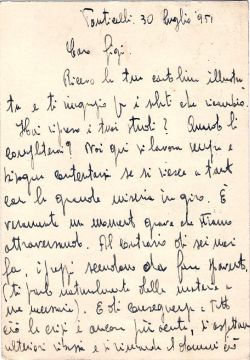 Ponticelli, 30 Luglio 951
Caro Gigi,
Ricevo la tua cartolina illustra
ta e ti ringrazio per i saluti che ricambio.
Hai ripreso i tuoi studi? Quando li
completerai? Noi qui si lavora sempre e
bisogna contentarsi se si riesce a
con la grande miseria in giro. È
veramente un momento grave che stiamo
attraversando. Al contrario di sei mesi
fa, i prezzi scendono da fare
(ti parlo naturalmente della
). E di conseguenza a tutto
ciò la crisi è ancora più acuta, si aspettano
ulteriori ribassi e si rimanda al domani ciò